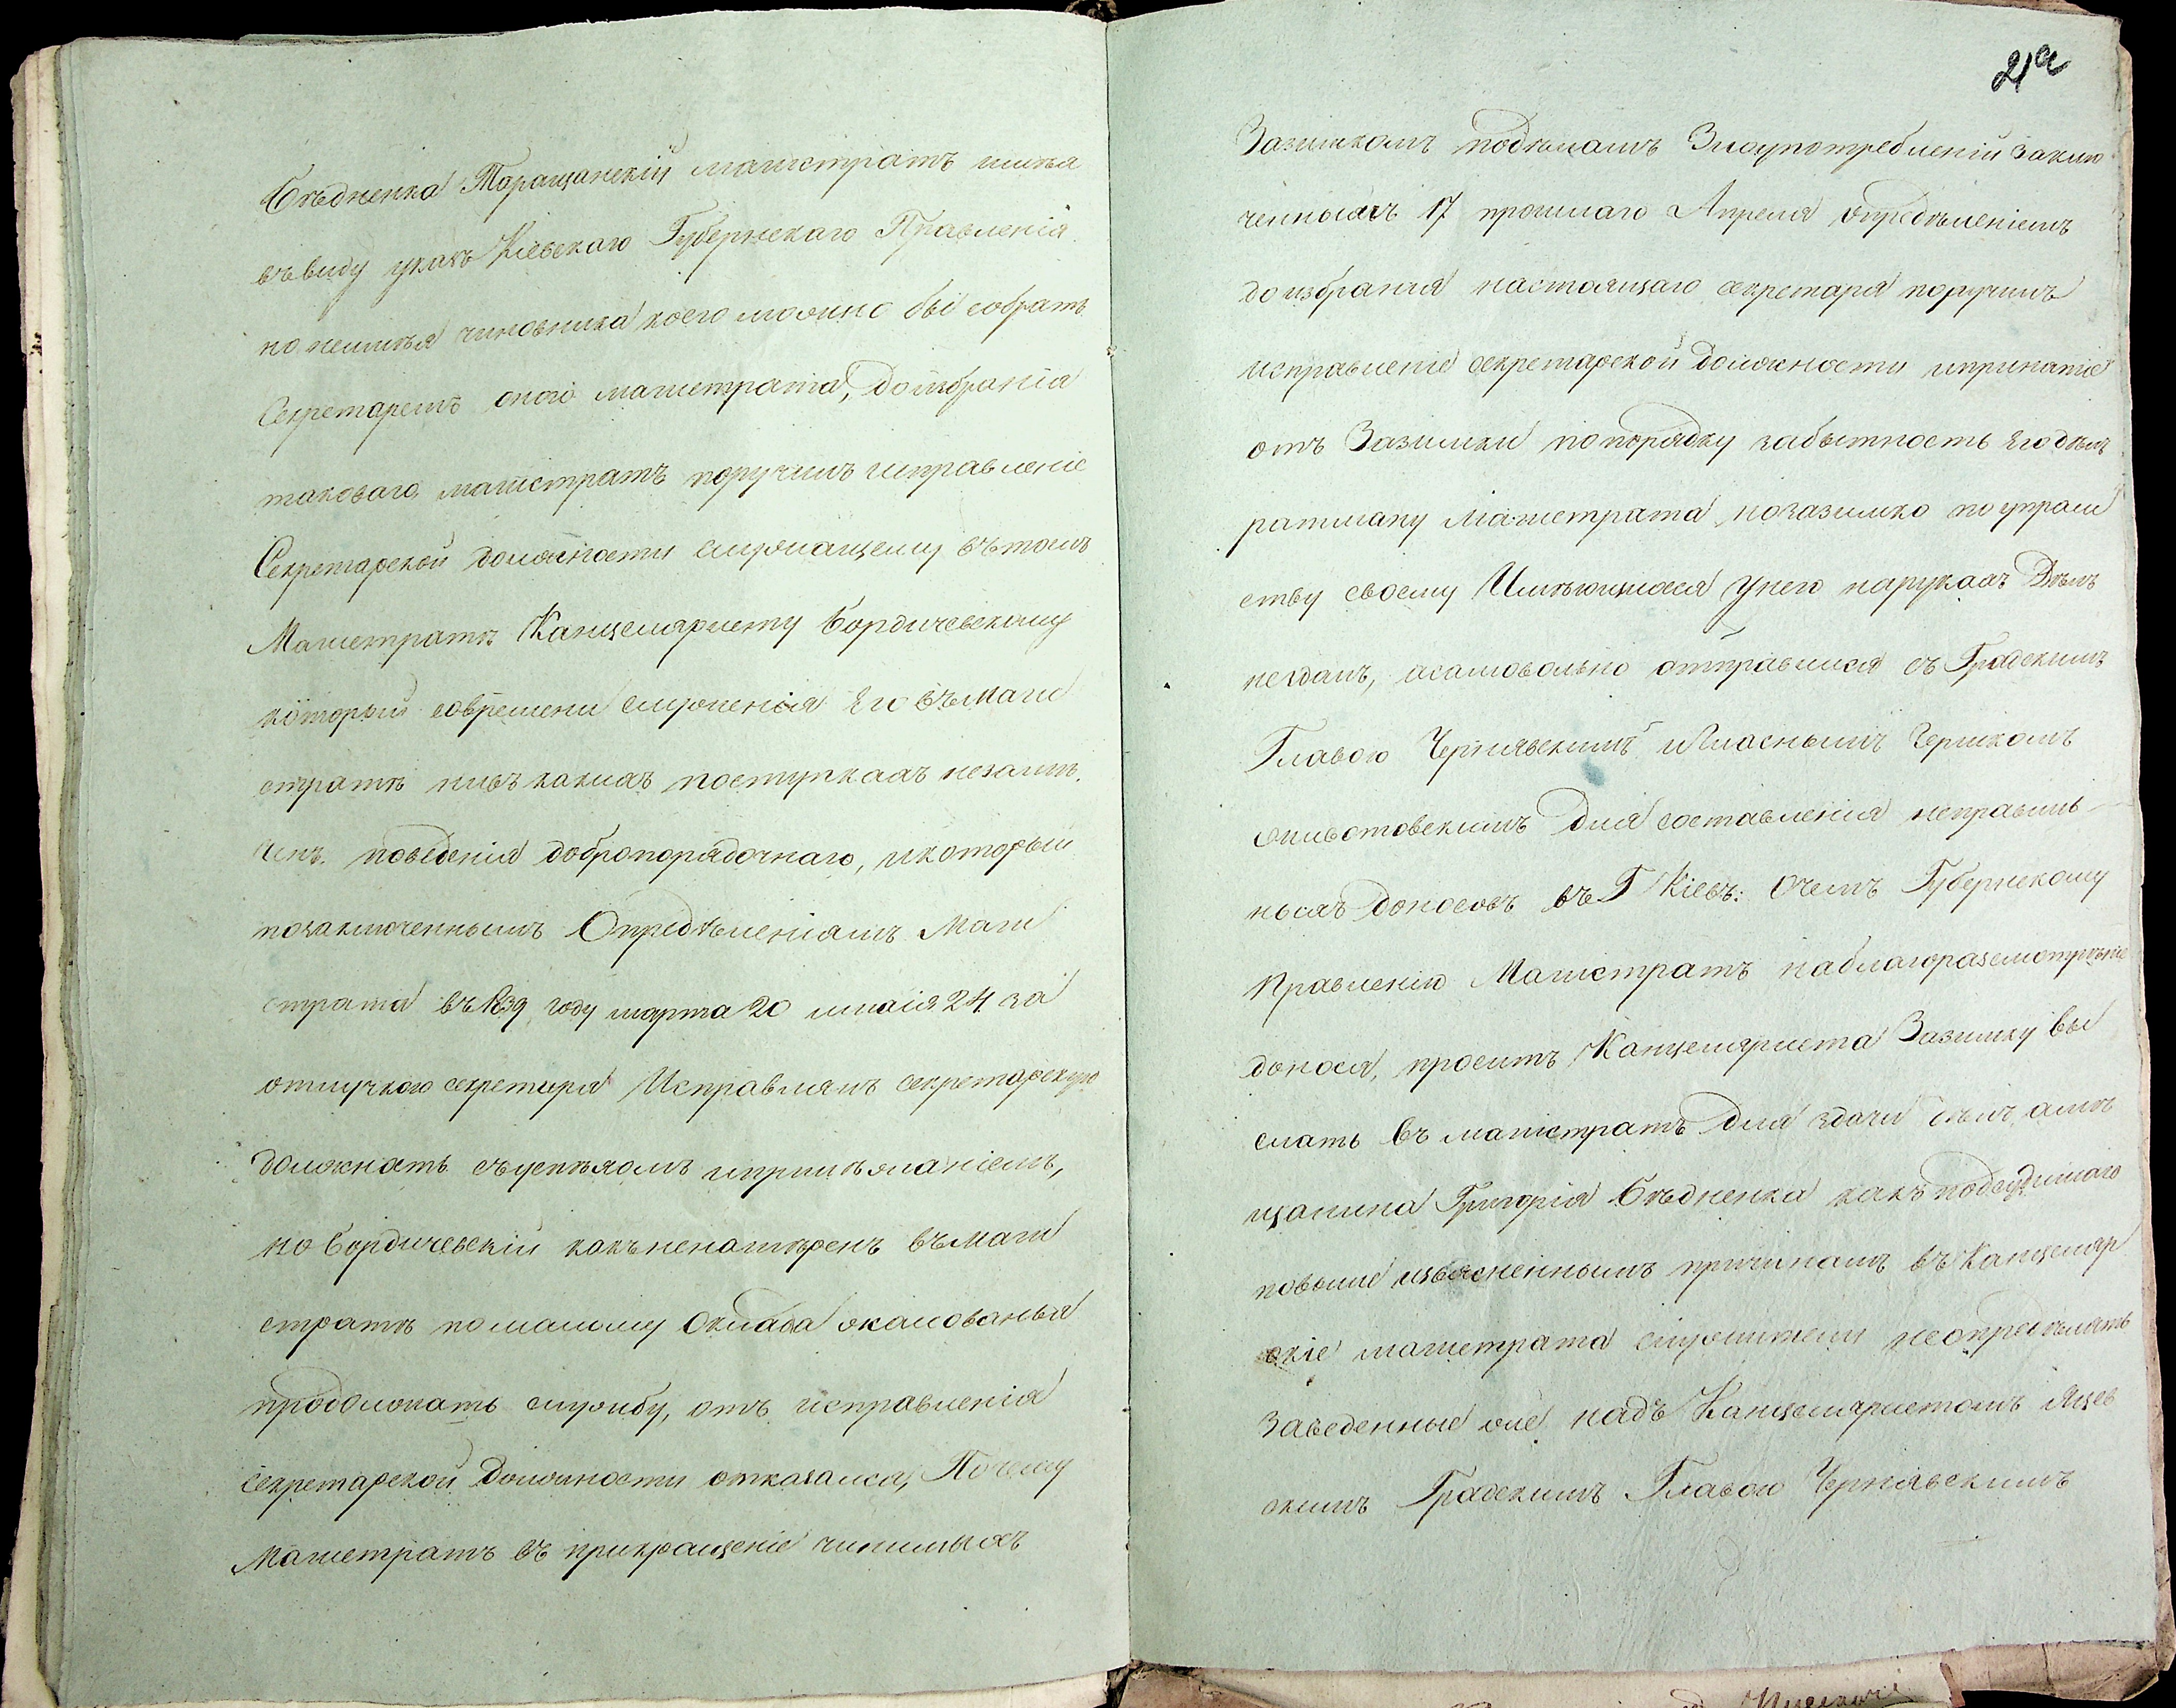 Бѣдненка Таращанскій магистратъ имѣя
въ виду указъ Кіевскаго Губернскаго Правленія
но неимѣя чиновника коего можно бы собрать
Секретаремъ оного магистрата, до избранія
таковаго магистратъ поручилъ исправленіе
Секретарской должности служащему въ томъ
Магистратѣ Канцеляристу Бордичевскому
который современи служенія Его въ маги
стратѣ нивъ какихъ поступкахъ незамѣ
ченъ поведенія добропорядочнаго, и который
позаключеннымъ Опредѣленіямъ Маги
страта въ 1839 году марта 20 и маія 24 за
отлучкою секретаря Исправлялъ секретарскую
должность съ успѣхомъ и прилѣжаніемъ,
но Бордичевскій какъ ненамѣренъ въ маги
стратѣ по малому Оклада жалованья
продолжать службу, отъ исправленія
секретарской должности отказался, Почему
Магистратъ въ прикращеніе чинимыхъ
21а
Зазимкомъ подѣламъ Злоупотребленій заклю
ченнымъ 17 прошлаго Апреля опредѣленіемъ
до избранія настоящаго секретаря поручилъ
исправленіе секретарской должности и принятіе
отъ Зазимки по порядку забытность Его дѣлъ
ратману Магистрата, но зазимко по упрям
ству своему Имѣющихся у него на рукахъ Дѣлъ
нездалъ, а самовольно отправился съ Градскимъ
Главою Чернявскимъ и Гласнымъ Герикомъ
для составленія неправиль
ныхъ доносовъ въ Г Кіевъ: О чемъ Губернскому
Правленію Магистратъ на благоразсмотрѣніе
донося, проситъ Канцеляриста Зазимку вы
слать въ магистратъ для здачи дѣлъ, а мѣ
щанина Григорія Бѣдненка какъ подсудимаго
повыше изъясненнымъ причинамъ въ Канцеляр
скіе магистрата служители неопредѣлять
Заведенные оле надъ Канцеляристомъ Яцев
скимъ Градскимъ Главою Чернявскимъ